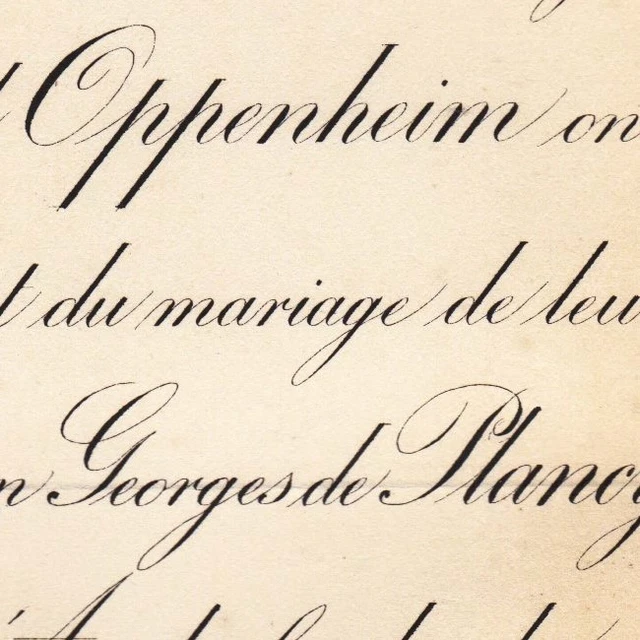 Oppenheim on
t du mariage de leu
n Georges de Plancy